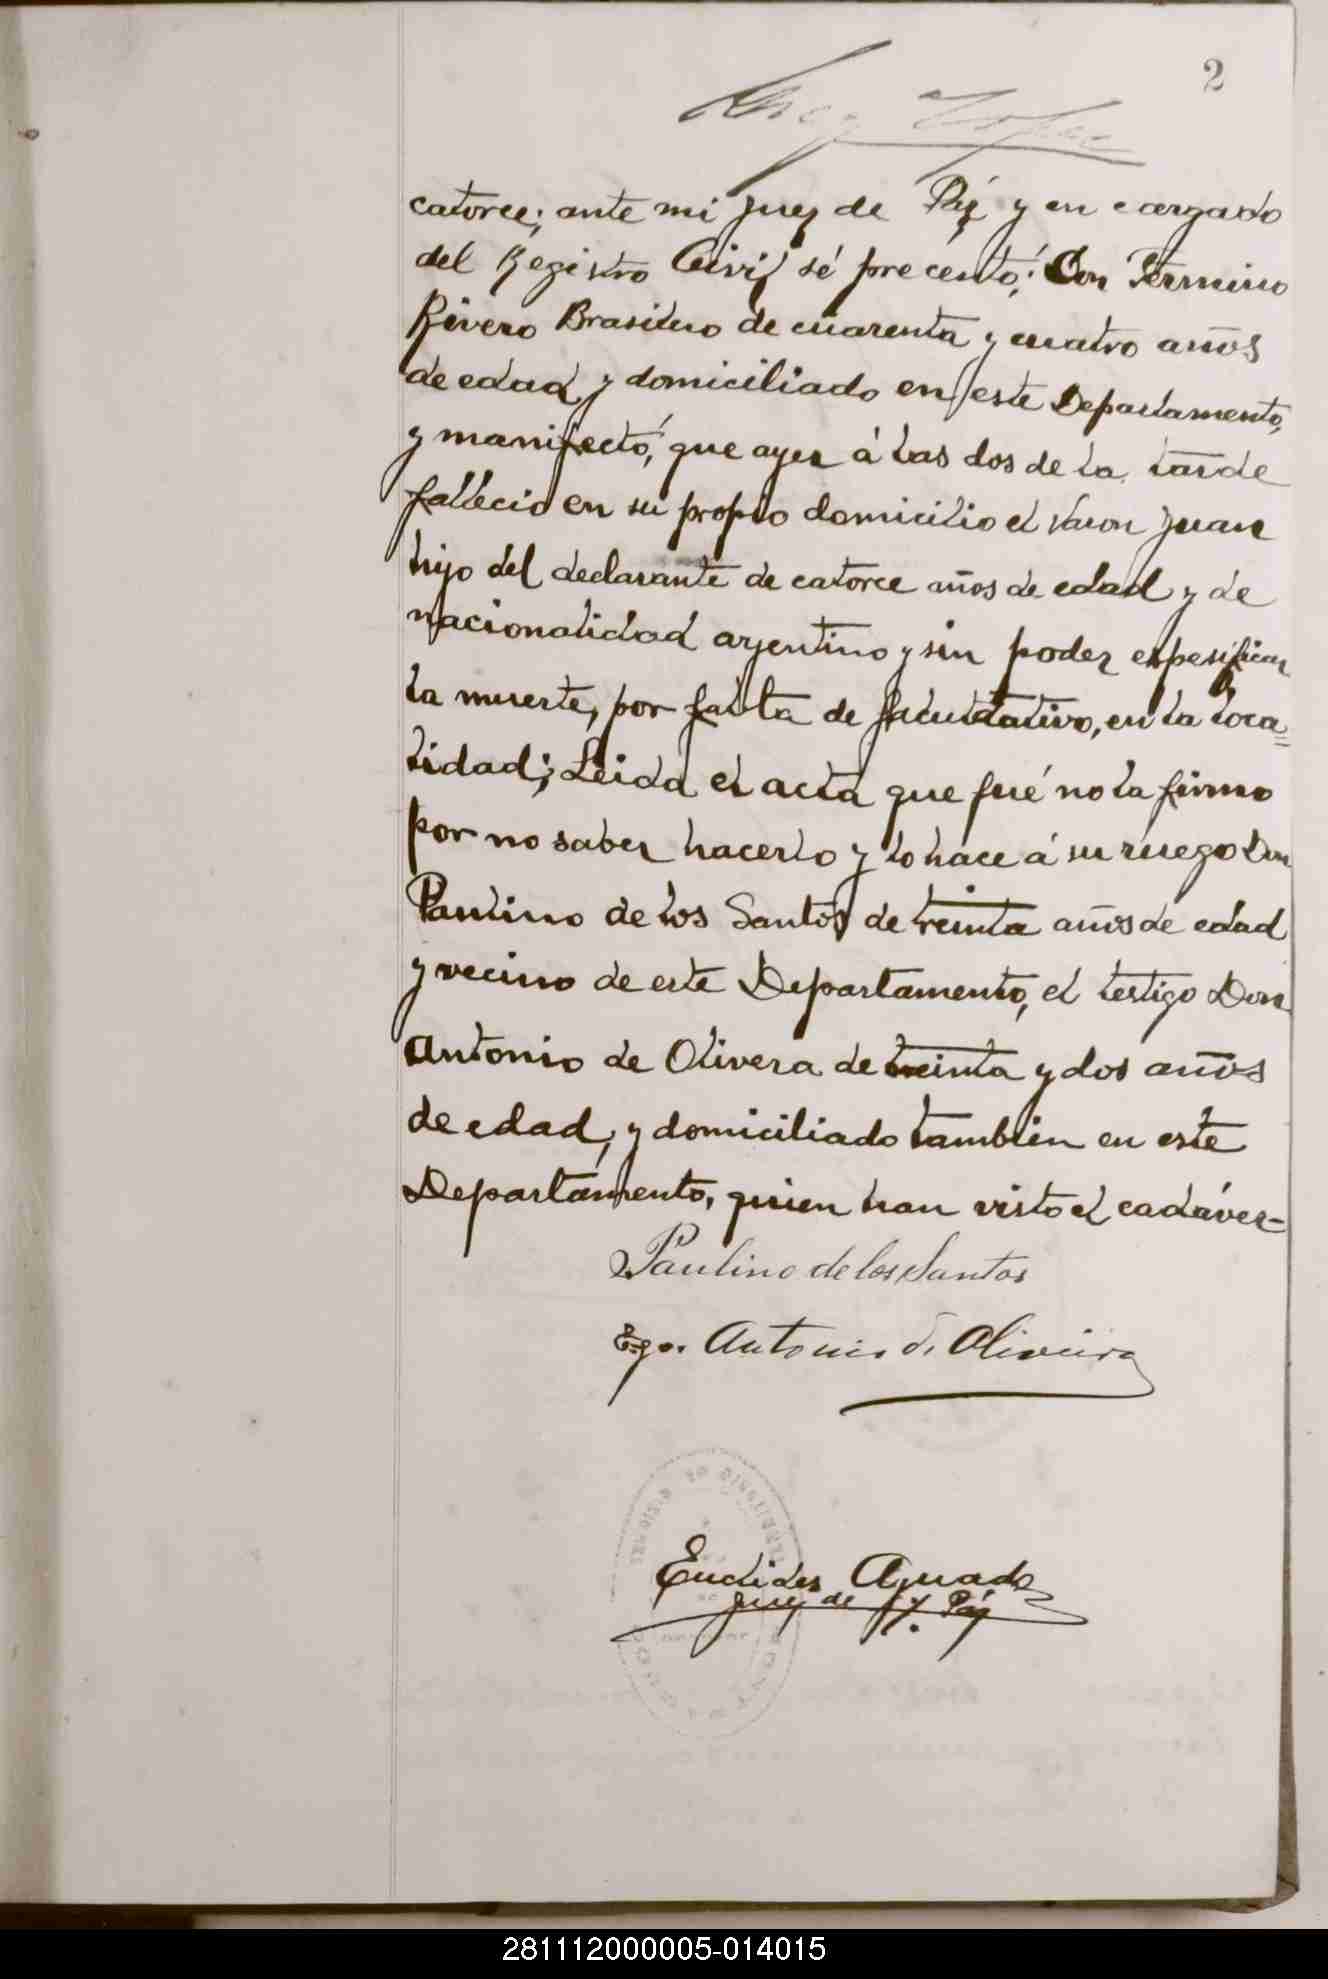 2
catorce; ante mi Juez de Páz y en cargado
del Registro Civil sé precentó; Don Fermino
Rivero Brasilero de cuarenta y cuatro años
de edad y domiciliado en este Departamento,
y manifectó, que ayer á las dos de la tarde
fallecio en su propio domicilio el Varon Juan
hijo del declarante de catorce años de edad y de
nacionalidad argentino y sin poder espesificar
la muerte, por falta de facultativo, en la loca=
lidad; Leida el acta que fué no la firmo
por no saber hacerlo y lo hace á su ruego Don
Paulino de los Santos de treinta años de edad
y vecino de este Departamento, el testigo Don
Antonio de Olivera de treinta y dos años
de edad, y domiciliado tambien en este
Departamento, quien han visto el cadáver-
Paulino de los Santos
Antonio d. Oliveira
Euclides Aguado
Juez de Páz
281112000005-014015